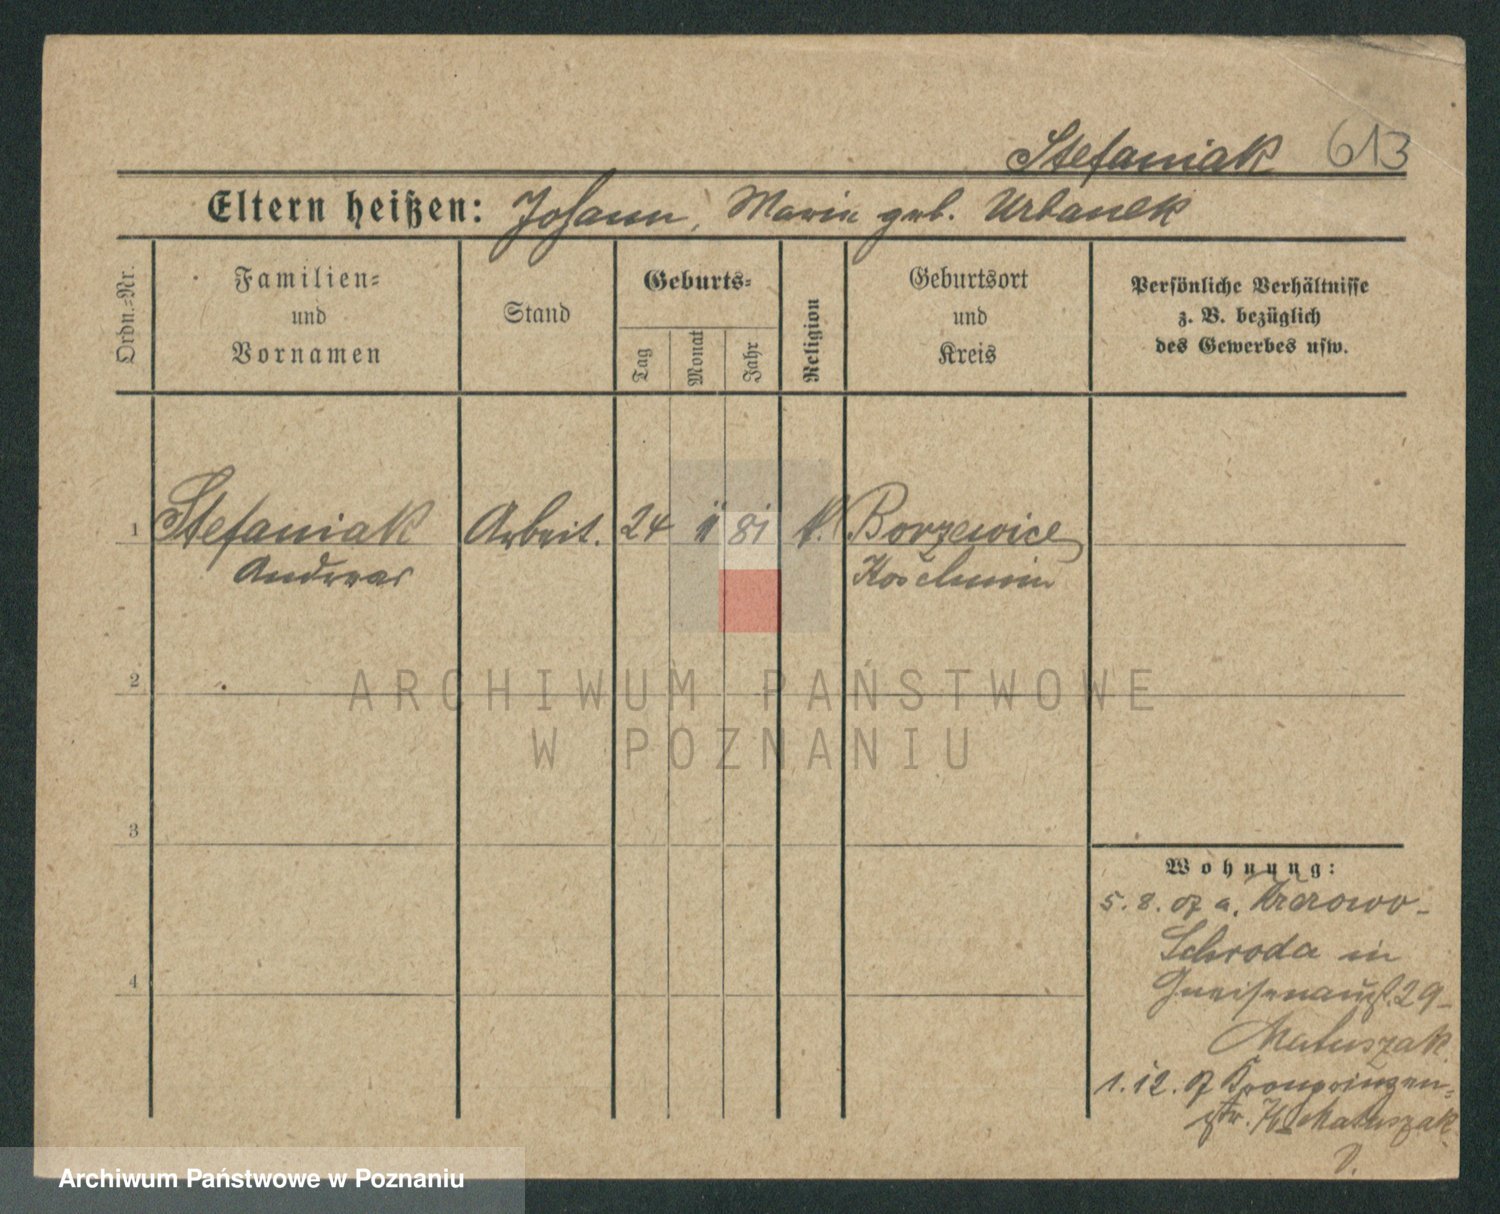 Stefaniak 613
Eltern heißen: Johann, Maria geb. Urbanek
Ordn.=Nr.
Familien=
und
Vornamen
Stand
Geburts=
Tag
Monat
Jahr
Religion
Geburtsort
und
Kreis
Persönliche Verhältnisse
z. B. bezüglich
des Gewerbes usw.
1 Stefaniak Arbeit. 24 11 81 k. Borzewice
Andreas Koschmin
2
3
4
ARCHIWUM PAŃSTWOWE
W POZNANIU
Wohnung:
5. 8. 07 a. Krerowo-
Schroda in
Gneisenaust. 29-
Matuszak
1. 12. 07 Kronprinzen=
str. Matuszak
Archiwum Państwowe w Poznaniu